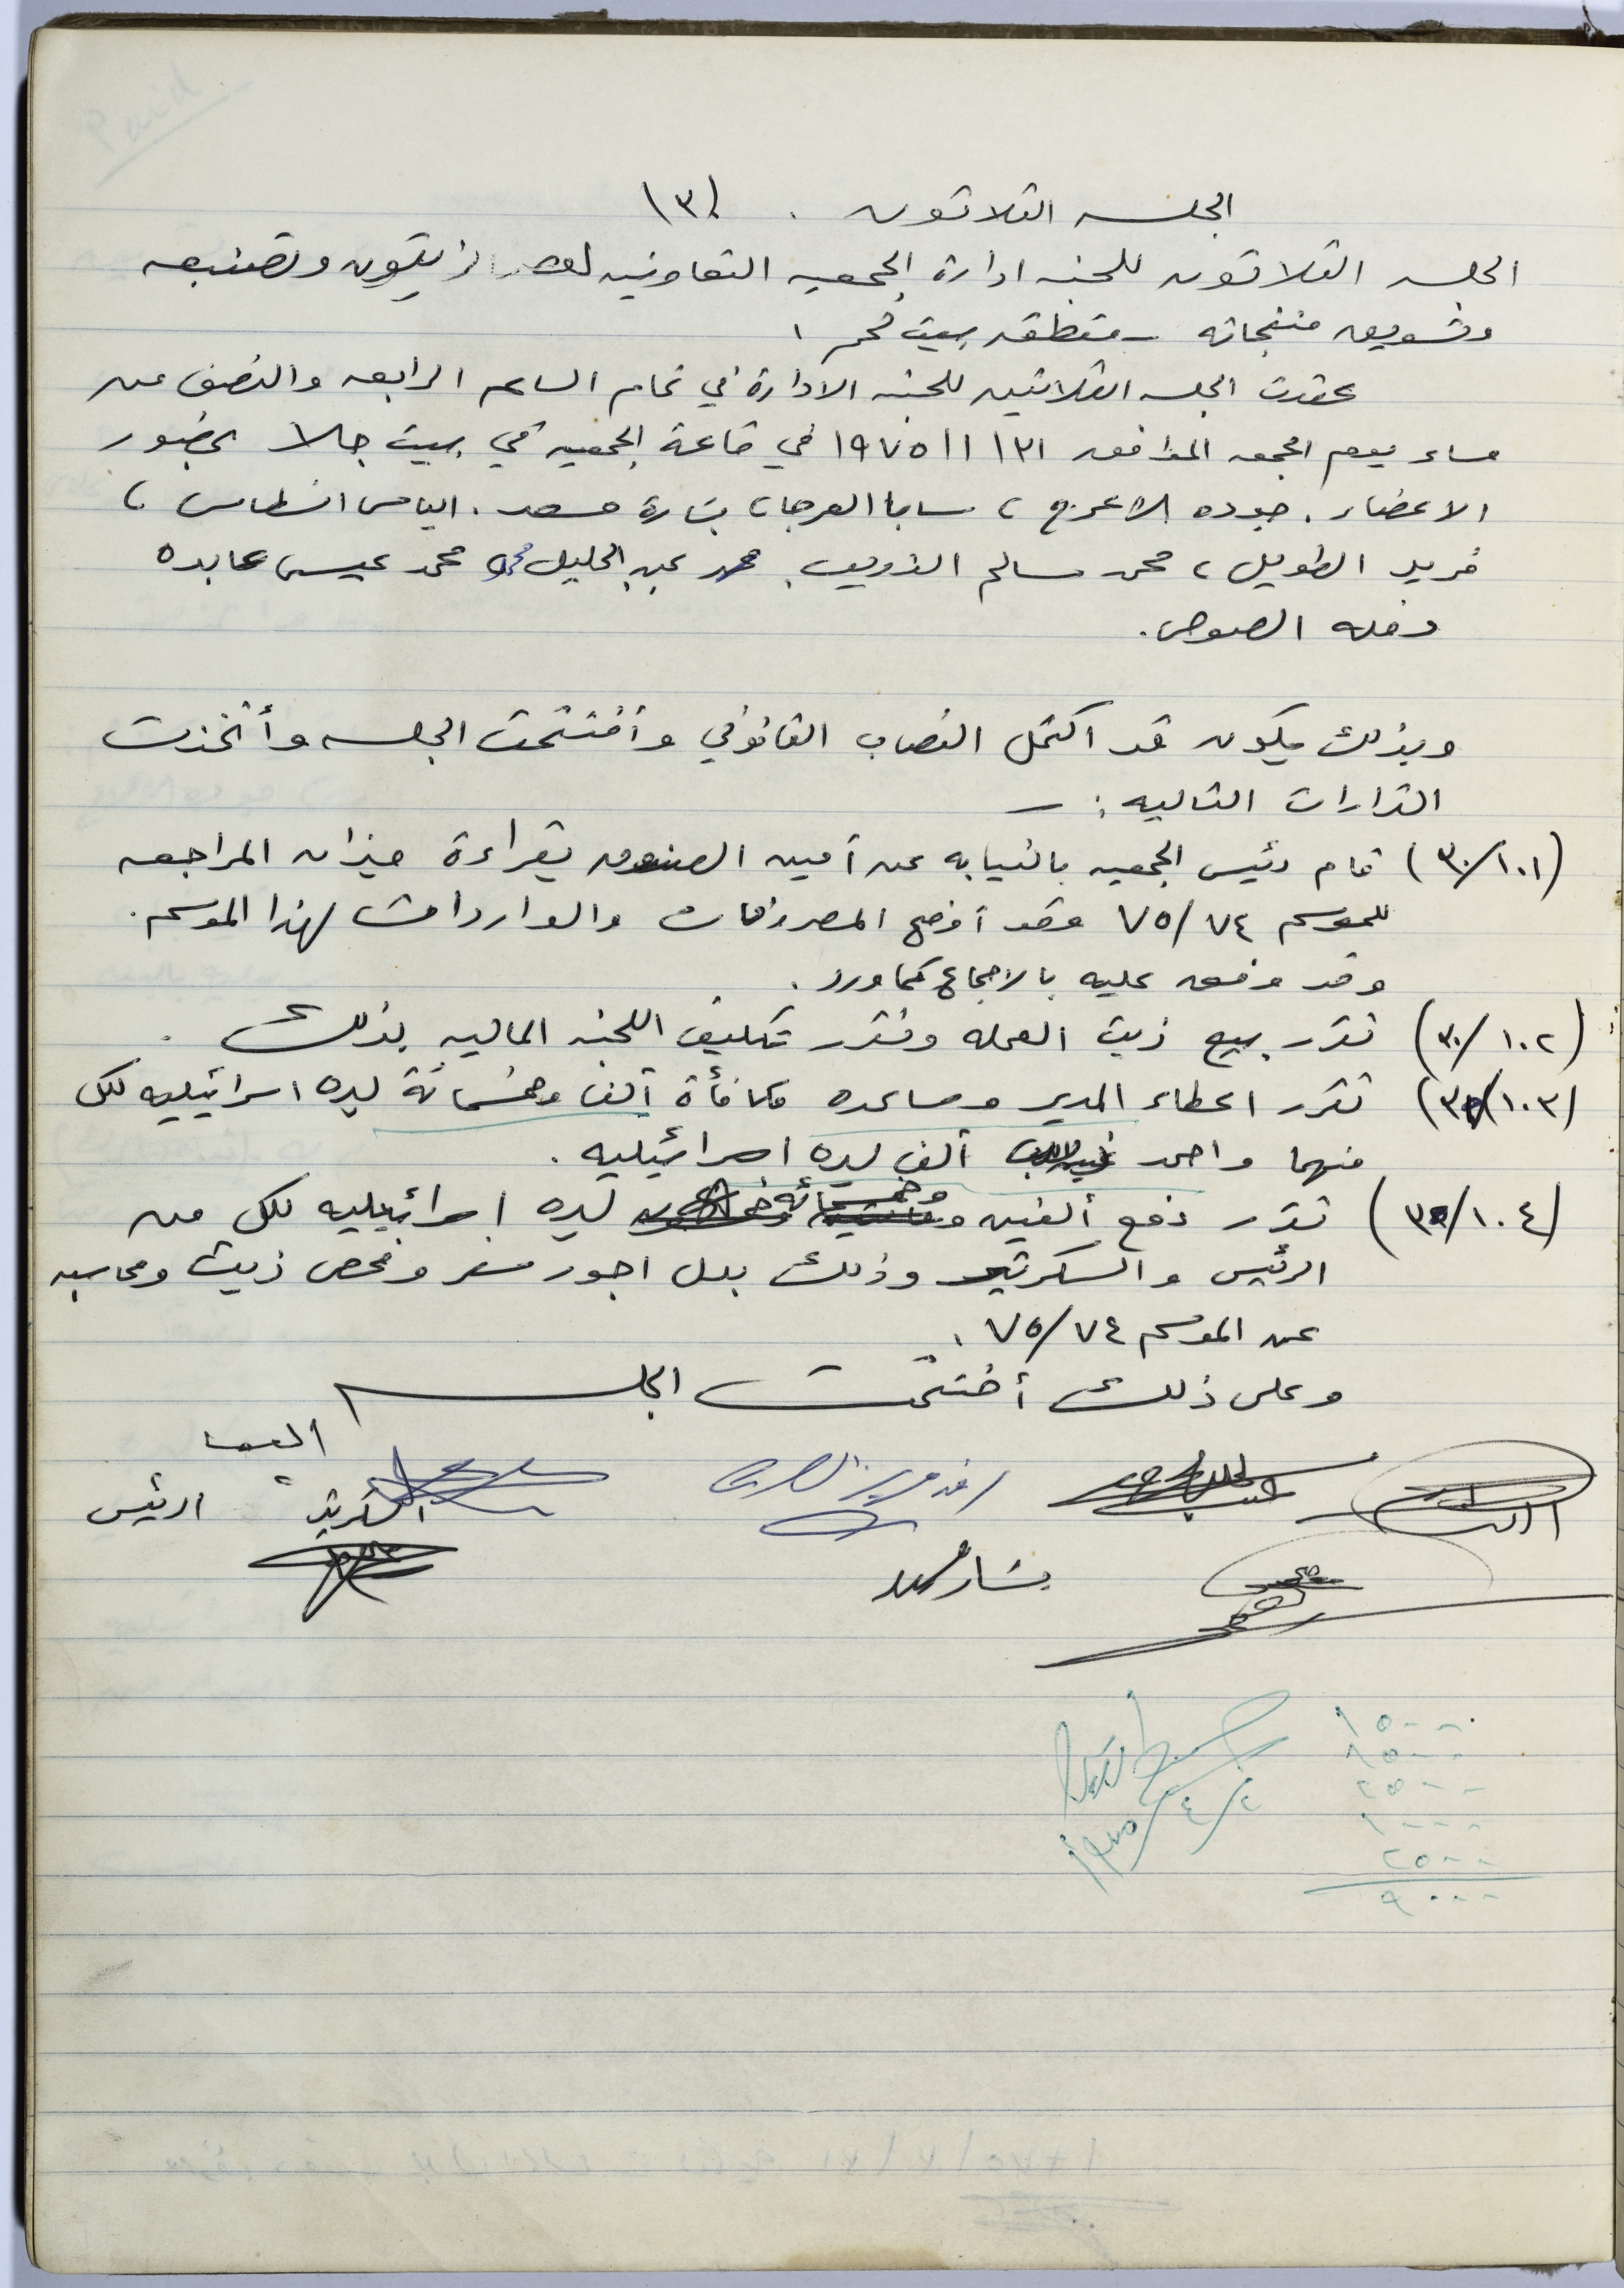 الجلسه الثلاثون . (٣٠)
الجلسه الثلاثون للجنه ادارة الجمعيه التعاونيه لعصر الزيتون وتصنيعه
وتسويق منتجاته - منطقه بيت لحم .
عقدت الجلسه الثلاثين للجنه الادارة في تمام الساعه الرابعه والنصف من
مساء يوم الجمعه الموافق ٣١/١/١٩٧٥ في قاعة الجمعيه في بيت جالا بحضور
الاعضاء . جوده الاعرج ، سابا العرجا ، بشارة مسعد . الياس انسطاس ،
فريد الطويل ، محمد سالم الذويب . محمد عبد الجليل محمد عيسى عابده
الصوص .
وبذلك يكون قد اكتمل النصاب القانوني وأفتتحت الجلسه وأتخذت
القرارات التاليه : -
(٣٠/١٠١) قام رئيس الجمعيه بالنيابه عن أمين الصندوق بقراءة ميزان المراجعه
للموسم ٧٥/٧٤ وقد أوضح المصروفات والواردات لهذا الموسم .
وقد وفق عليه بالاجماع كما ورد .
(٣٠/١٠٢) تقرر بيع زيت العمله وتقرر تكليف اللجنه الماليه بذلك .
(٣٠/١٠٣) تقرر اعطاء المدير ومساعده مكافأة ألف وخمسمائة ليره اسرائيليه لكل
منهما واحمد ألف ليره اسرائيليه .
(٣٠/١٠٤) تقرر دفع ألفين وخمسمائه ليره اسرائيليه لكل من
الرئيس والسكرتير وذلك بدل اجور سفر وفحص زيت ومحاسبه
عن الموسم ٧٥/٧٤ .
وعلى ذلك أختتمت الجلسه
السكرتير الرئيس
بشاره مسعد
١٥٠٠
١٥٠٠
٢٥٠٠
١٠٠٠
٢٥٠٠
٩٠٠٠
٢/٤/١٩٧٥
Paid